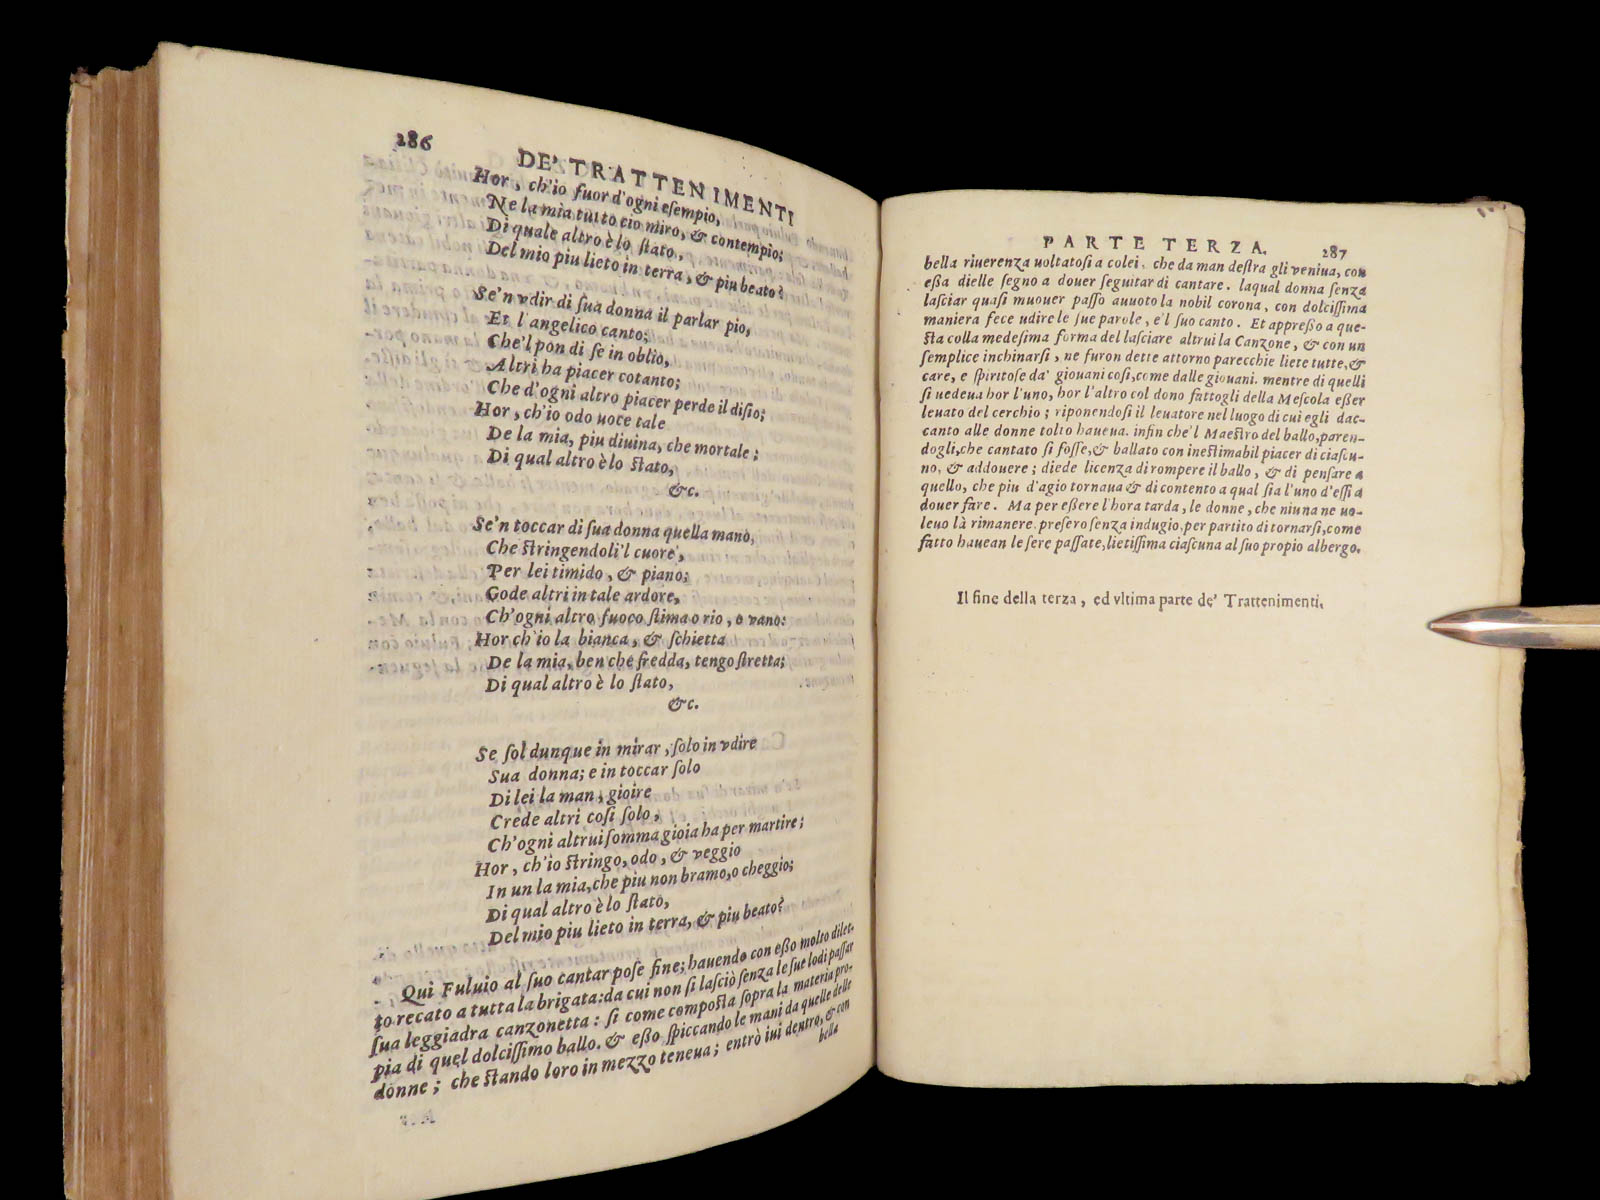 286
DE' TRATTENIMENTI
Hor, ch'io fuor d'ogni eſempio,
Ne la mia tutto cio miro, & contempio;
Di quale altro è lo ſtato,
Del mio piu lieto in terra, & piu beato?
Se'n vdir di ſua donna il parlar pio,
Et l'angelico canto;
Che'l pon di ſe in oblio,
Altri ha piacer cotanto;
Che d'ogni altro piacer perde il diſio;
Hor, ch'io odo uoce tale
De la mia, piu diuina, che mortale;
Di qual altro è lo ſtato,
&c.
Se'n toccar di ſua donna quella mano,
Che ſtringendoli'l cuore,
Per lei timido, & piano;
Gode altri in tale ardore,
Ch'ogni altro fuoco ſtima o rio, o vano:
Hor ch'io la bianca, & ſchietta
De la mia, ben che fredda, tengo ſtretta;
Di qual altro è lo ſtato,
&c.
Se ſol dunque in mirar, ſolo in vdire
Sua donna; e in toccar ſolo
Di lei la man, gioire
Crede altri coſi ſolo,
Ch'ogni altrui ſomma gioia ha per martire;
Hor, ch'io ſtringo, odo, & veggio
In un la mia, che piu non bramo, o cheggio;
Di qual altro è lo ſtato,
Del mio piu lieto in terra, & piu beato?
Qui Fuluio al ſuo cantar poſe fine; hauendo con eſſo molto dilet-
to recato a tutta la brigata: da cui non ſi laſciò ſenza le ſue lodi paſſar
ſua leggiadra canzonetta: ſi come compoſta ſopra la materia pro-
pia di quel dolciſſimo ballo. & eſſo ſpiccando le mani da quelle delle
donne; che ſtando loro in mezzo teneua; entrò iui dentro, & con
bella
PARTE TERZA. 287
bella riuerenza uoltatoſi a colei, che da man deſtra gli veniua, con
eſſa dielle ſegno a douer ſeguitar di cantare. laqual donna ſenza
laſciar quaſi muouer paſſo auuoto la nobil corona, con dolciſſima
maniera fece udire le ſue parole, e'l ſuo canto. Et appreſſo a que-
ſta colla medeſima forma del laſciare altrui la Canzone, & con un
ſemplice inchinarſi, ne furon dette attorno parecchie liete tutte, &
care, e ſpiritoſe da' giouani coſi, come dalle giouani. mentre di quelli
ſi uedeua hor l'uno, hor l'altro col dono fattogli della Meſcola eſſer
leuato del cerchio; riponendoſi il leuatore nel luogo di cui egli dac-
canto alle donne tolto haueua. infin che'l Maeſtro del ballo, paren-
dogli, che cantato ſi foſſe, & ballato con ineſtimabil piacer di ciaſcu-
no, & addouere; diede licenza di rompere il ballo, & di penſare a
quello, che piu d'agio tornaua & di contento a qual ſia l'uno d'eſſi a
douer fare. Ma per eſſere l'hora tarda, le donne, che niuna ne uo-
leuo là rimanere preſero ſenza indugio, per partito di tornarſi, come
fatto hauean le ſere paſſate, lietiſſima ciaſcuna al ſuo propio albergo.
Il fine della terza, ed vltima parte de' Trattenimenti.